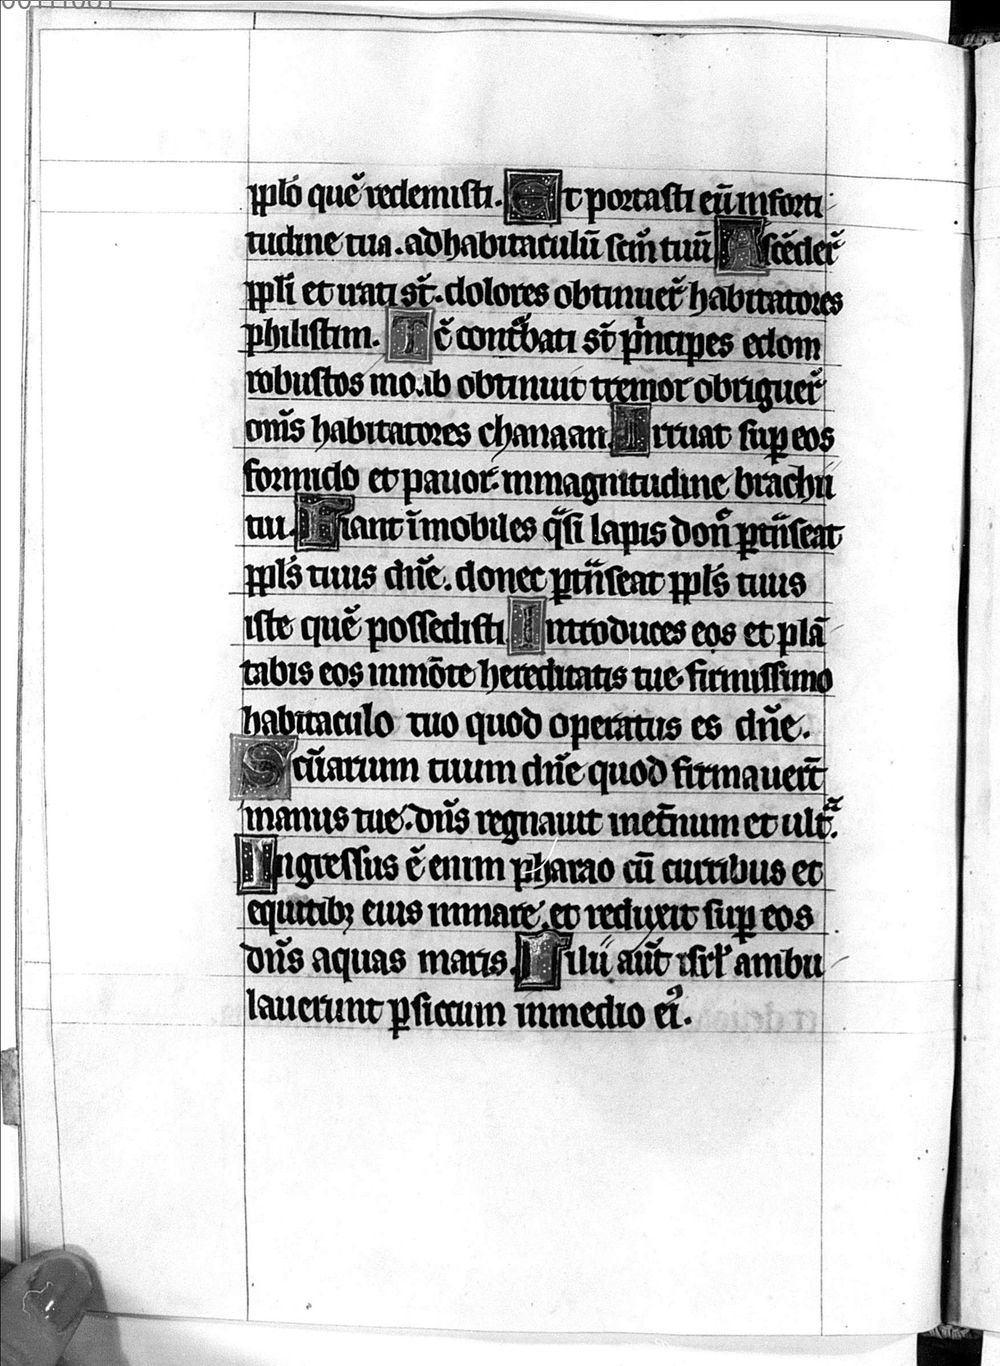 pplo᷑ quē redemisti. Et portasti eū in forti
tudine tua. ad habitaculū scm̄ tuū Ascēder̄
ppl̄i et irati st̄. dolores obtinuer̄ habitatores
philistim. Tc̄ conturbati st̄ pⁱncipes edom
robustos moab obtinuit tremor obriguer̄
om̄s habitatores chanaan. Irruat suꝑ eos
formido et pauor. in magnitudine brachii
tui. Fiant īmobiles qᵃsi lapis don̄ ꝑtn̄seat
ppl̄s tuus dn̄e. donec ꝑtn̄seat ppl̄s tuus
iste quē possedisti. Introduces eos et plā
tabis eos in mōte hereditatis tue firmissimo
habitaculo tuo quod operatus es dn̄e.
Scūarium tuum dn̄e quod firmauer̄t
manus tue. dn̄s regnauit inet̄num et ult̄ᵃ.
Ingressus ē enim pharao cū curribus et
equitibꝫ eius in mare. et reduxit suꝑ eos
dn̄s aquas maris. Filii aūt isrl̄ ambu
lauerunt ꝑ siccum in medio ei᷒.